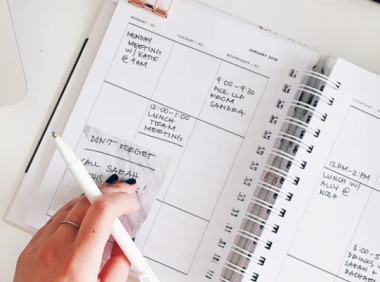 MONDAY / 01
TUESDAY / 02
WEDNESDAY / 03
JANUARY 2018
MONDAY
MEETING
W/ KATIE
@ 9AM
9:00 - 9:30
PICK UP
FROM
SANDRA
12:00-1:00
LUNCH
TEAM
MEETING
DON'T FORGET
CALL SARAH
THIS
!
THURSDAY
12PM-2PM
LUNCH W/
ALLY @
3:00-5
DRINKS
SARAH +